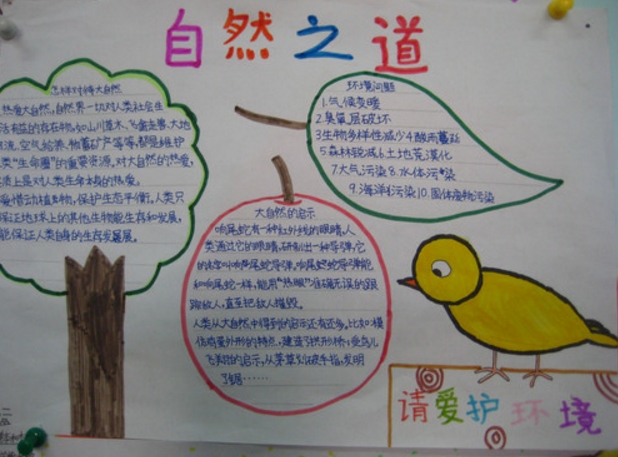 自然之道
怎样对待大自然
热爱大自然，自然界一切对人类社会生
活有益的存在物，如山川草木、飞禽走兽、大地
河流、空气给养、物蓄矿产等等，都是维护
人类“生命圈”的重要资源，对大自然的热爱，
实质上是对人类生命本身的热爱。
爱惜动植物，保护生态平衡。人类只
保证地球上的其他生物能生存和发展，
能保证人类自身的生存发展。
环境问题
1.气候变暖
2.臭氧层破坏
3生物多样性减少4酸雨蔓延
5.森林锐减6.土地荒漠化
7.大气污染8.水体污染
9.海洋污染10.固体废物污染
大自然的启示
响尾蛇有一种红外线的眼睛，人
类通过它的眼睛，研制出一种导弹，它
的名字叫响尾蛇导弹。响尾蛇导弹能
和响尾蛇一样，能用“热眼”准确无误的跟
踪敌人，直至把敌人摧毁。
人类从大自然中得到的启示还有还多。比如：模
仿鸡蛋外形的特点，建造了拱形桥；受鸟儿
飞翔的启示，从茅草划破手指，发明
了锯……
请爱护环境